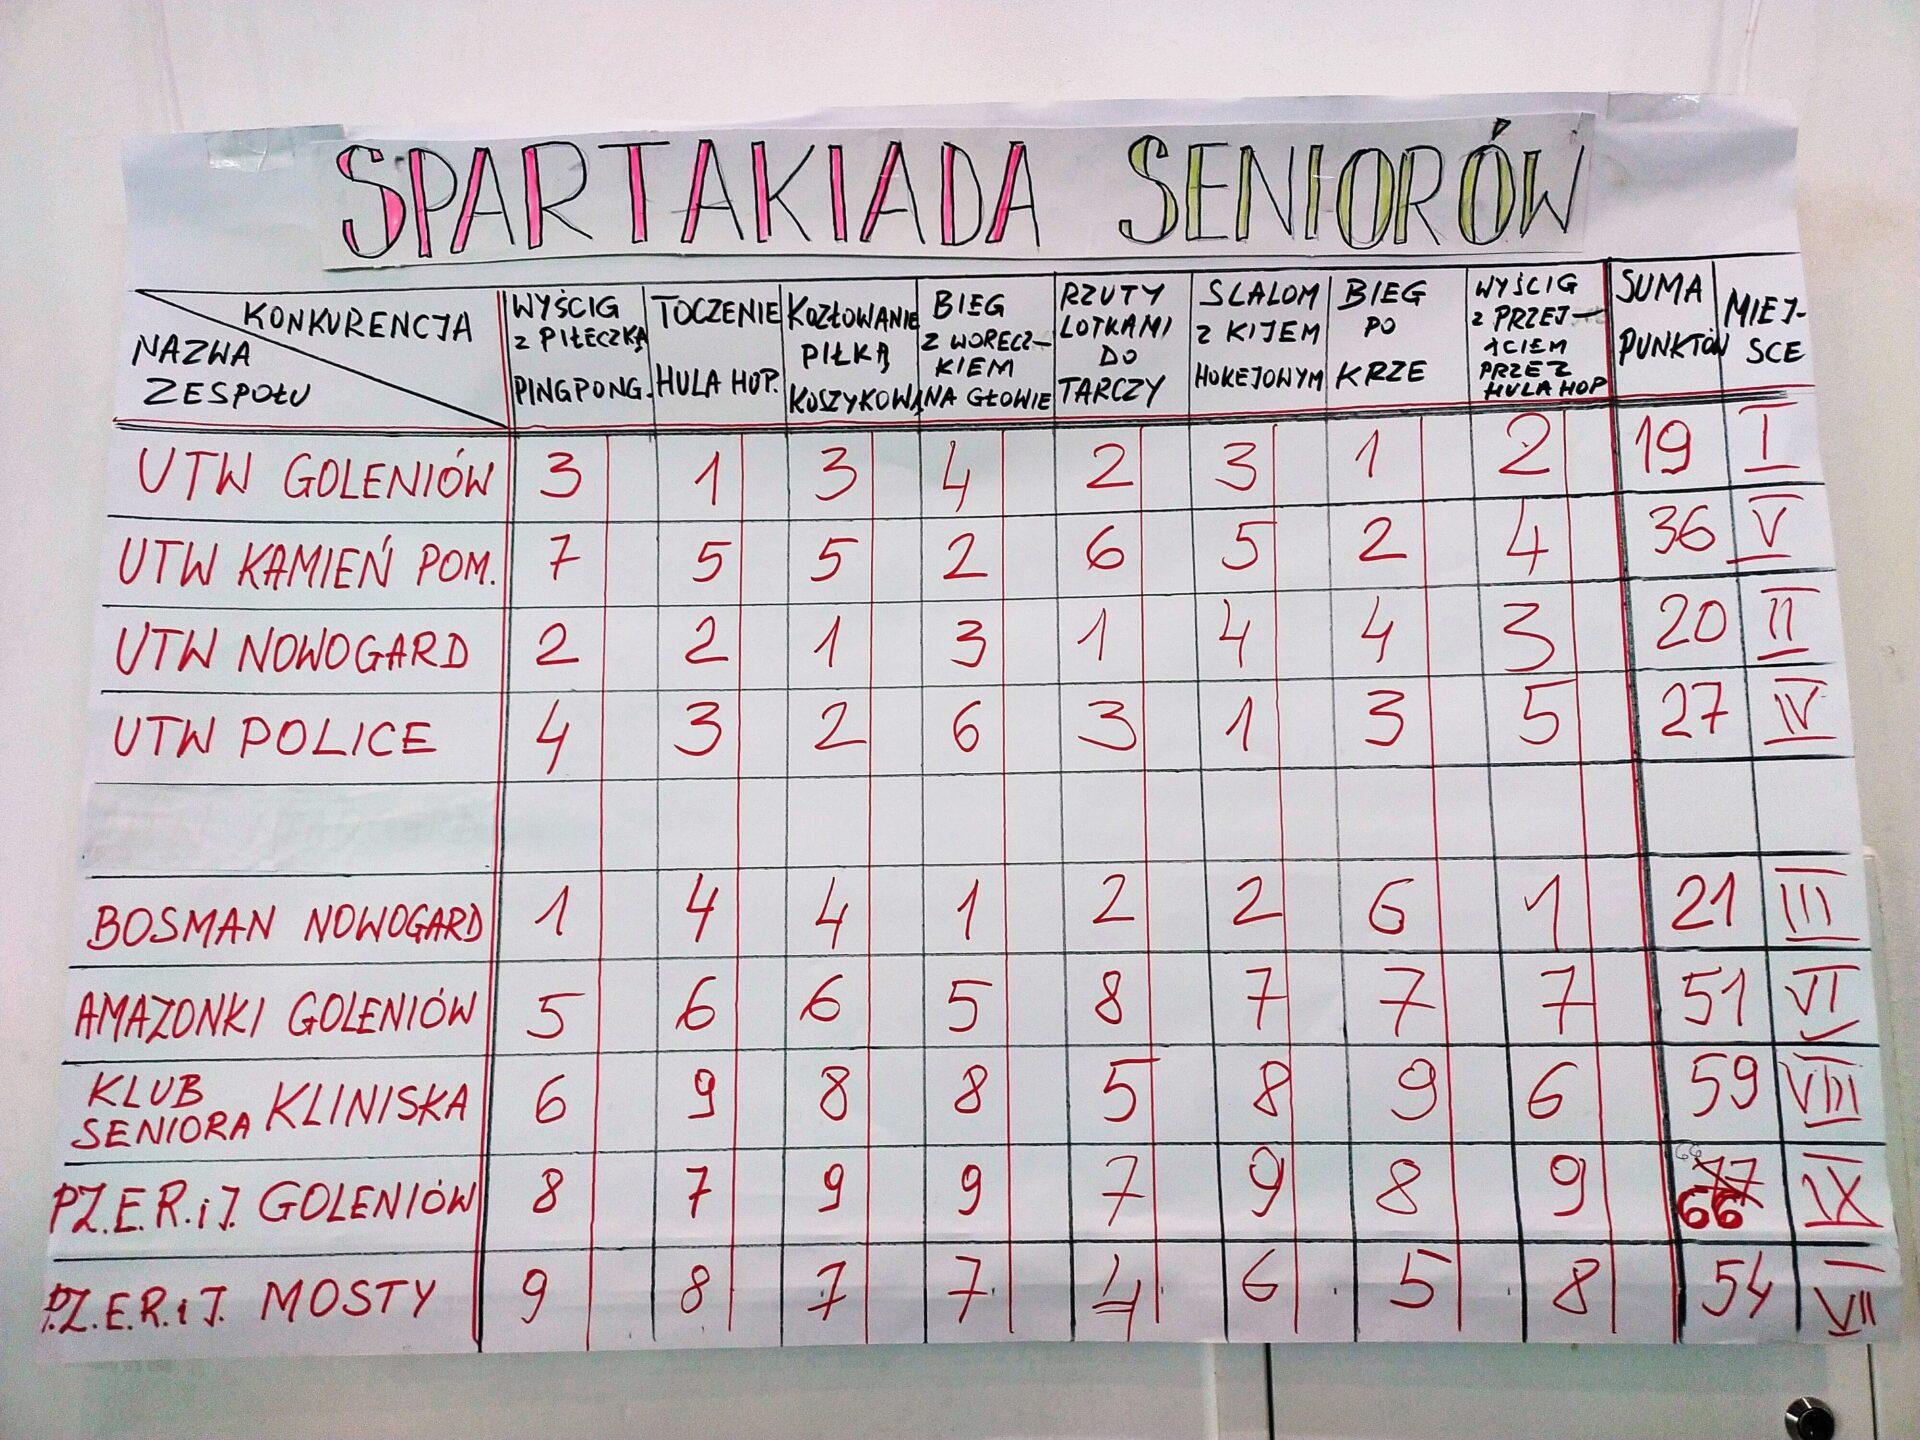 SPARTAKIADA SENIORÓW
KONKURENCJA
NAZWA
ZESPOŁU
WYŚCIG
Z PIŁECZKĄ
PINGPONG.
TOCZENIE
HULA HOP.
KOZŁOWANIE
PIŁKĄ
KOSZYKOWĄ
BIEG
Z WORECZ-
KIEM
NA GŁOWIE
RZUTY
LOTKAMI
DO
TARCZY
SLALOM
Z KIJEM
HOKEJOWYM
BIEG
PO
KRZE
WYŚCIG
Z PRZEJ-
ŚCIEM
PRZEZ
HULA HOP
SUMA
PUNKTÓW
MIEJ-
SCE
UTW GOLENIÓW 3 1 3 4 2 3 1 2 19 I
UTW KAMIEŃ POM. 7 5 5 2 6 5 2 4 36 V
UTW NOWOGARD 2 2 1 3 1 4 4 3 20 II
UTW POLICE 4 3 2 6 3 1 3 5 27 IV
BOSMAN NOWOGARD 1 4 4 1 2 2 6 1 21 III
AMAZONKI GOLENIÓW 5 6 6 5 8 7 7 7 51 VI
KLUB
SENIORA KLINISKA 6 9 8 8 5 8 9 6 59 VIII
66 77
P.Z.E.R.i J. GOLENIÓW 8 7 9 9 7 9 8 9 66 IX
P.Z.E.R.i J. MOSTY 9 8 7 7 4 6 5 8 54 VII